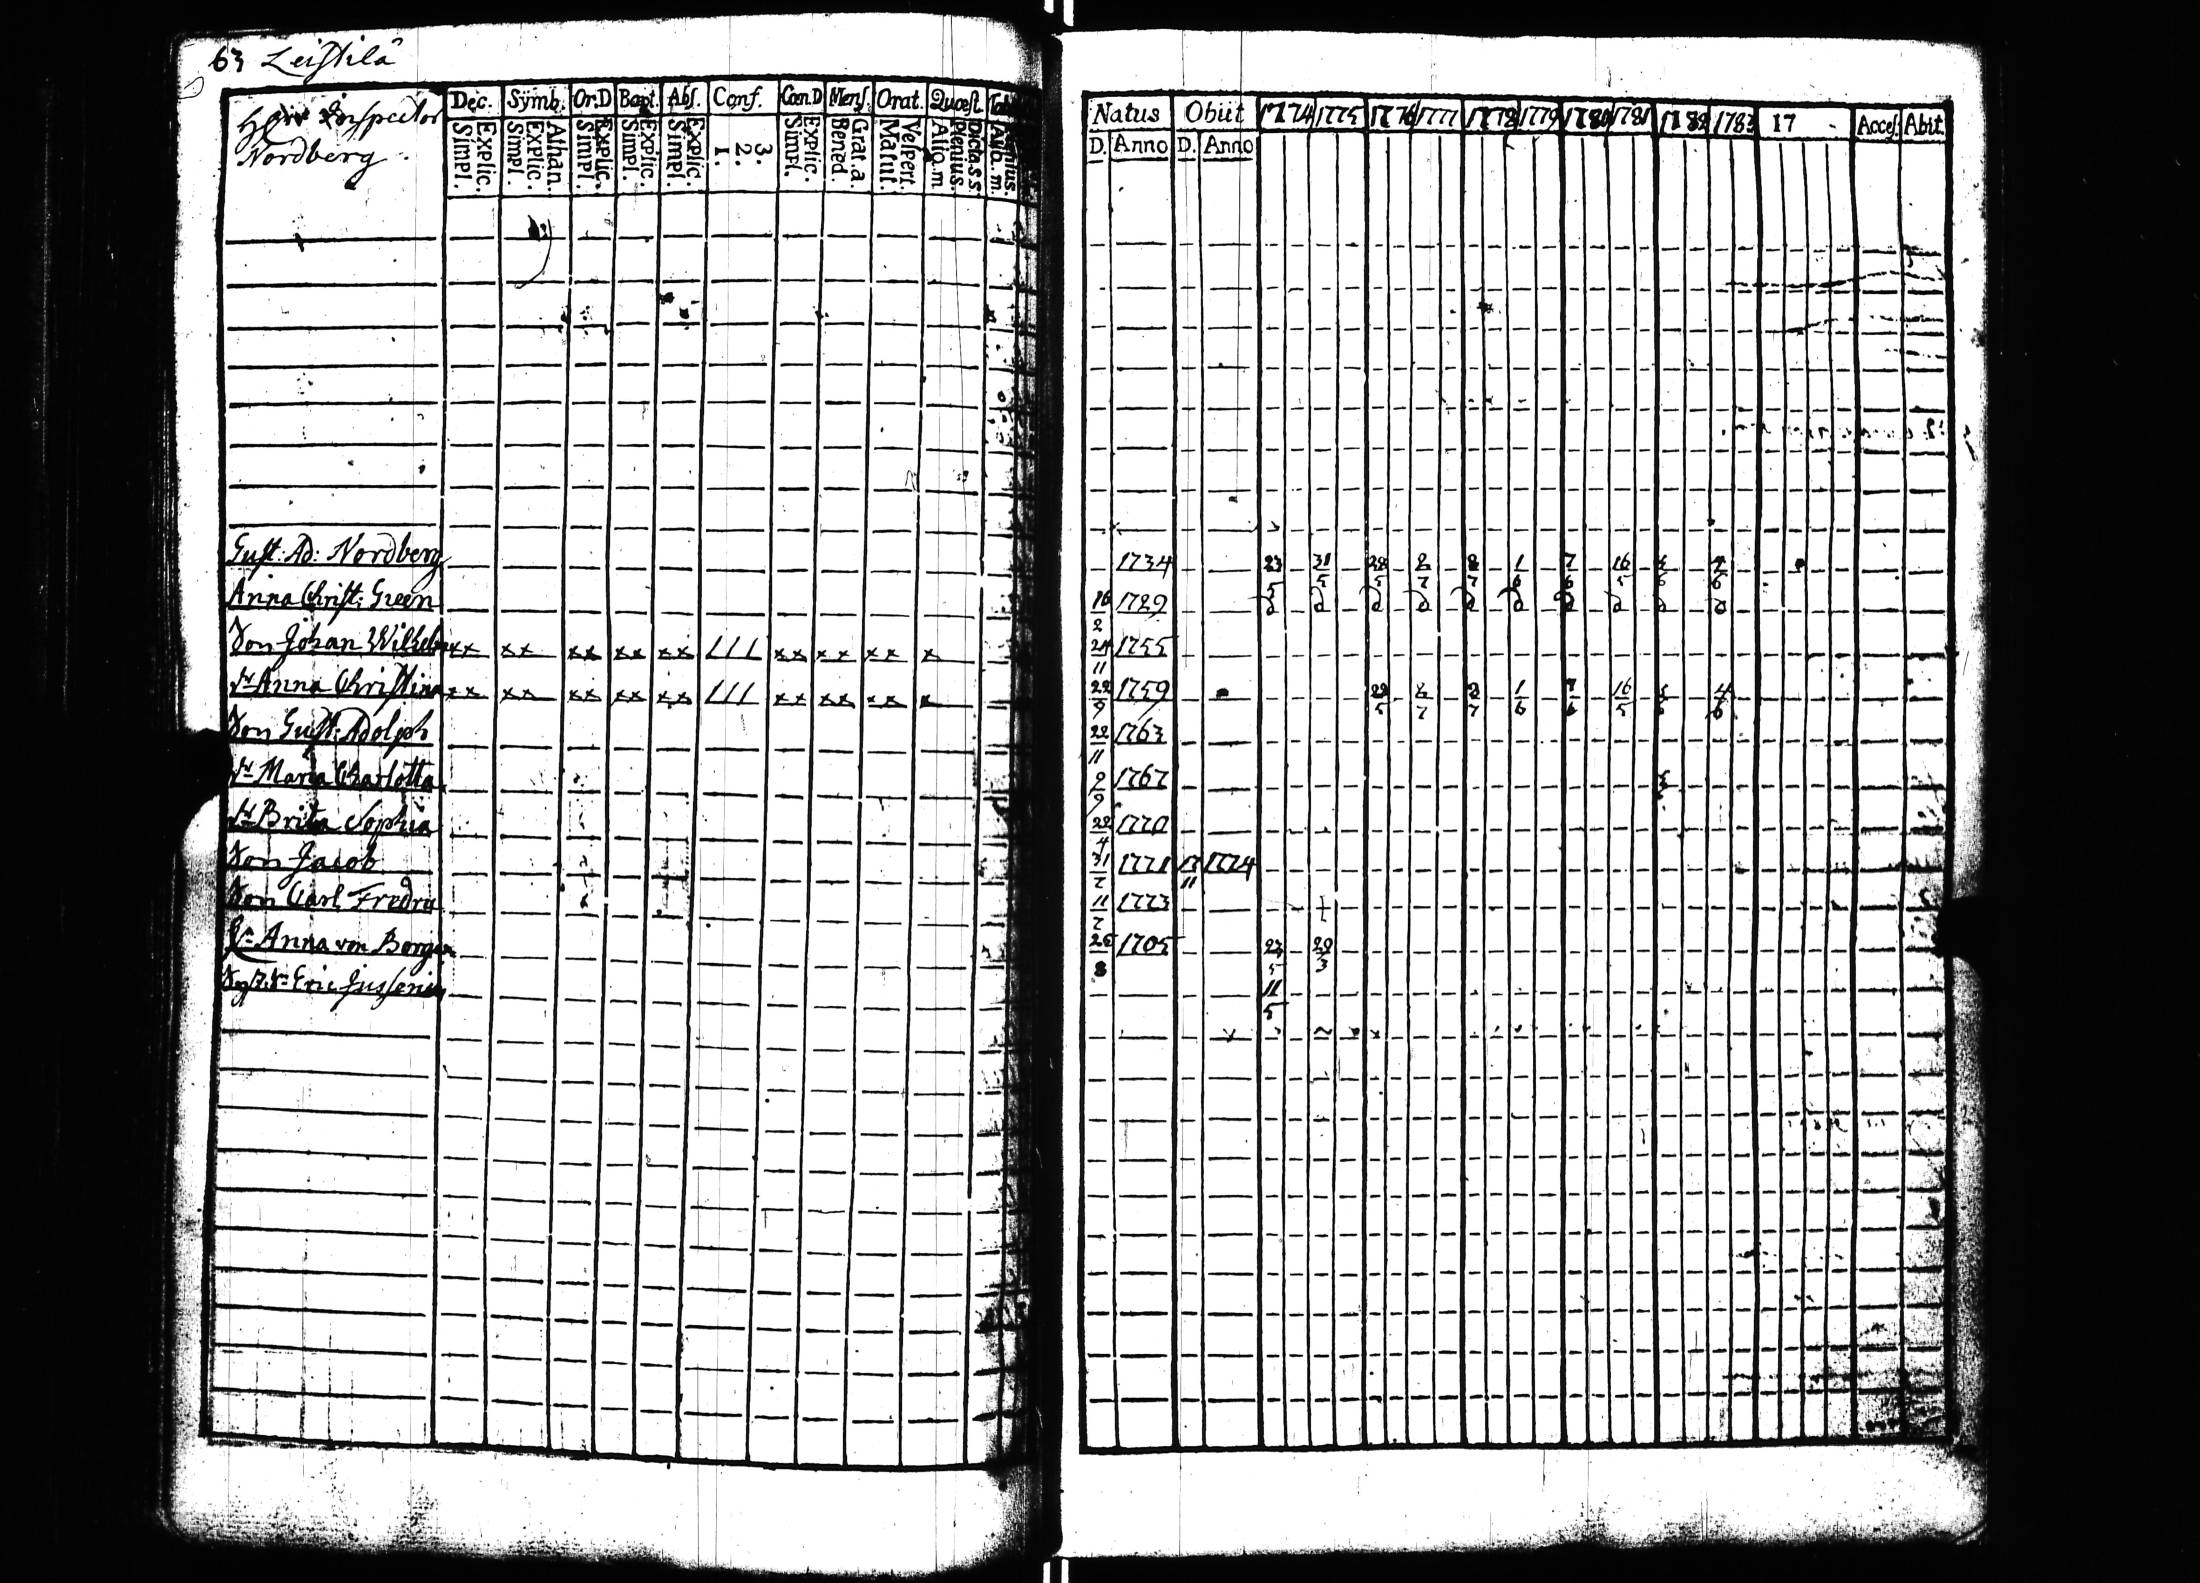 63 Leistilä
Herr Inspector
Nordberg.
Dec. Symb. Or.D Bapt. Abs. Conf. Cœn.D Mens. Orat. Quæst.
Explic. Simpl. Athan. Explic. Simpl. Explic. Simpl. Explic. Simpl. Explic. Simpl. 3. 2. 1. Explic. Simpl. Grat. a. Bened. Vespert. Matut. Dicta s.s. Plenius. Aliq. m
Natus Obiit 1774 1775 1776 1777 1778 1779 1780 1781 1782 1783 17 Acces. Abit.
D. Anno D. Anno
Gust: Ad: Nordberg 1734 23/5 31/5 28/5 2/7 2/7 1/6 7/6 16/5 4/6
Anna Christ: Green 16/2 1729
Son Johan Wilhelm xx xx xx xx xx 111 xx xx xx x 24/11 1755
Dr Anna Christina xx xx xx xx xx 111 xx xx xx x 22/9 1759 28/5 2/7 2/7 1/6 7/6 16/5 4/6
Son Gust: Adolph 22/11 1763
Dr Maria Charlotta 2/9 1767
Dr Brita Sophia 22/4 1770
Son Jacob 31/7 1771 17/11 1774
Son Carl Fredric 11/7 1773
Anna von Borgen 25/8 1705 23/5 29/3
Eric Jussenius 11/5